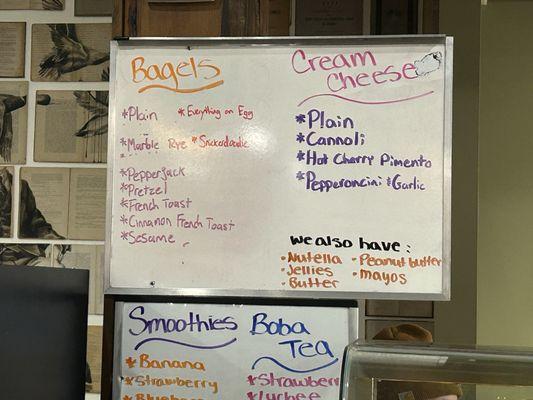 Bagels
*Plain *Everything on Egg
*Marble Rye *Snickerdoodle
*Pepperjack
*Pretzel
*French Toast
*Cinnamon French Toast
*Sesame
Cream Cheese
*Plain
*Cannoli
*Hot Cherry Pimento
*Pepperoncini & Garlic
we also have:
•Nutella •Peanut butter
•Jellies •mayos
•Butter
Smoothies
*Banana
*Strawberry
*Blueberry
Boba
Tea
*Strawberr
*Lychee